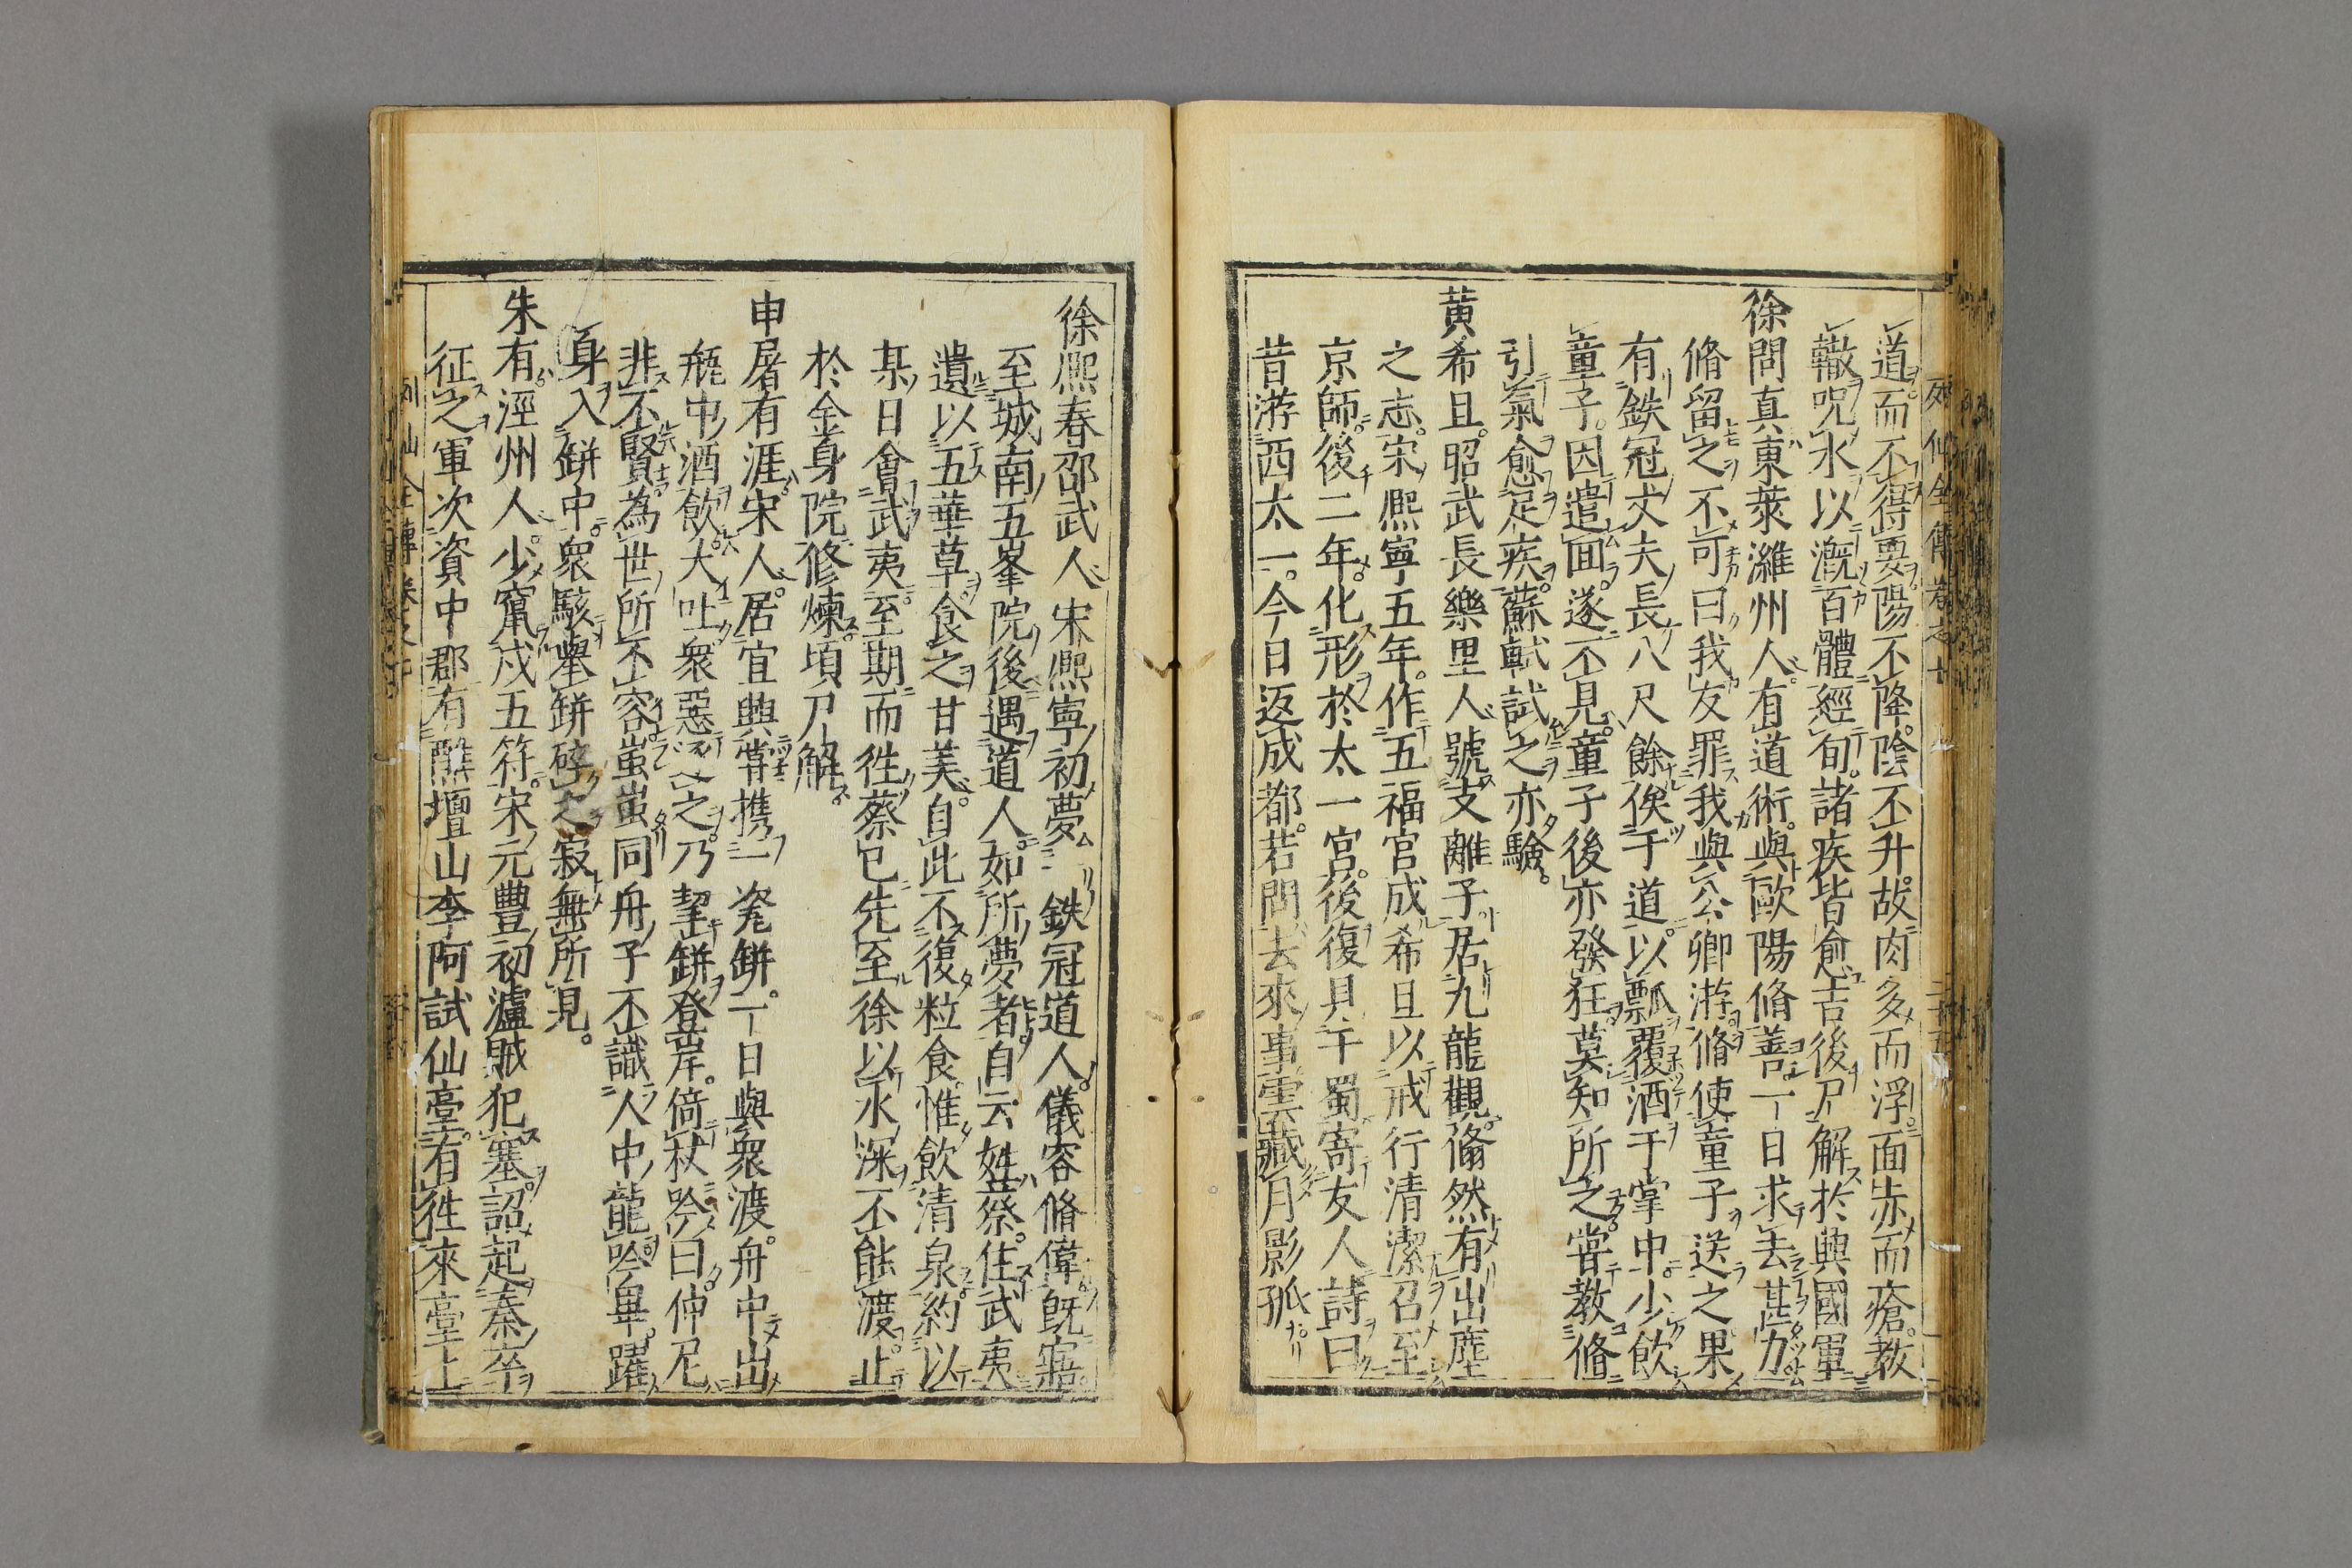 道而不得要陽不降陰不升故肉多而浮面赤而瘡教
轍呪水以漑百體經旬諸疾皆愈吉後尸解於興國軍
徐問真東萊濰州人有道術與歐陽脩善一日求去甚力
脩留之不可曰我友罪我與公卿游脩使童子送之果
有鉄冠丈夫長八尺餘俟于道以瓢覆酒于掌中少飲
童子因遣回遂不見童子後亦發狂莫知所之嘗教脩
引氣愈足疾蘇軾試之亦驗
黄希旦昭武長樂里人號支離子居九龍觀翛然有出塵
之志宋熈寧五年作五福宮成希旦以戒行清潔召至
京師後二年化形於太一宮後復見于蜀寄友人詩曰
昔游西太一今日返成都若問去來事雲藏月影孤
列仙全傳卷之十
徐熈春邵武人宋熈寧初夢鉄冠道人儀容脩偉旣寤
至城南五峯院後遇道人如所夢者自云姓蔡住武夷
遺以五華草食之甘美自此不復粒食惟飲清泉約以
某日會武夷至期而徃蔡已先至徐以水深不能渡止
於金身院修煉頃尸解
申屠有涯宋人居宜興甞携一瓷缾一日與衆渡舟中出
瓶中酒飲大吐衆惡之乃挈缾登岸倚杖吟曰仲尼
非不賢為世所不容蚩蚩同舟子不識人中龍吟畢躍
身入缾中衆駭舉缾碎之寂無所見
朱有涇州人少竄戍五符宋元豐初瀘賊犯塞詔起秦卒
征之軍次資中郡有醮壇山李阿試仙臺有徃來臺上
列仙全傳卷之十